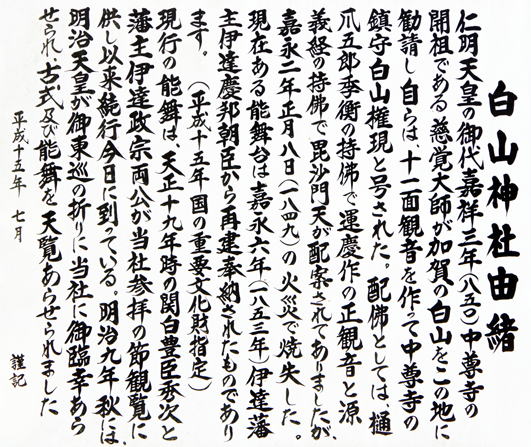 白山神社由緒
仁明天皇の御代嘉祥三年(八五〇)中尊寺の
開祖である慈覚大師が加賀の白山をこの地に
勧請し自らは、十一面観音を作って中尊寺の
鎮守白山権現と号された。配佛としては、樋
爪五郎季衡の持佛で運慶作の正観音と源
義経の持佛で毘沙門天が配案されてありましたが、
嘉永二年正月八日(一八四九)の火災で焼失した。
現在ある能舞台は嘉永六年(一八五三年)伊達藩
主伊達慶邦朝臣から再建奉納されたものであり
ます。(平成十五年国の重要文化財指定)
現行の能舞は、天正十九年時の関白豊臣秀次と
藩主伊達政宗両公が当社参拝の節観覧に
供し以来続行今日に到っている。明治九年秋には、
明治天皇が御東巡の折りに当社に御臨幸あら
せられ、古式及び能舞を天覧あらせられました
平成十五年 七月 謹記